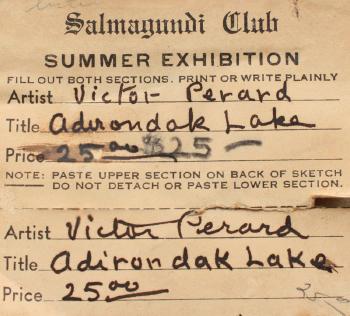 Salmagundi Club
SUMMER EXHIBITION
FILL OUT BOTH SECTIONS. PRINT OR WRITE PLAINLY
Artist Victor Perard
Title Adirondak Lake
Price 25.00 $25—
NOTE: PASTE UPPER SECTION ON BACK OF SKETCH
DO NOT DETACH OR PASTE LOWER SECTION.
Artist Victor Perard
Title Adirondak Lake
Price 25.00